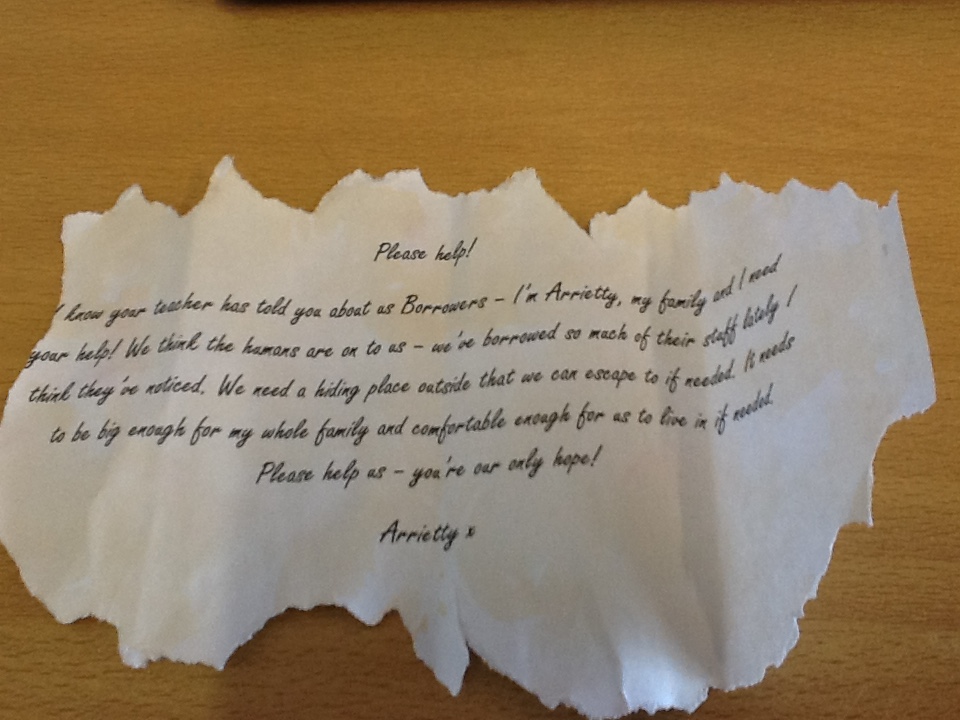 Please help!
I know your teacher has told you about us Borrowers – I'm Arrietty, my family and I need
your help! We think the humans are on to us – we've borrowed so much of their stuff lately I
think they've noticed. We need a hiding place outside that we can escape to if needed. It needs
to be big enough for my whole family and comfortable enough for us to live in if needed.
Please help us – you're our only hope!
Arrietty x